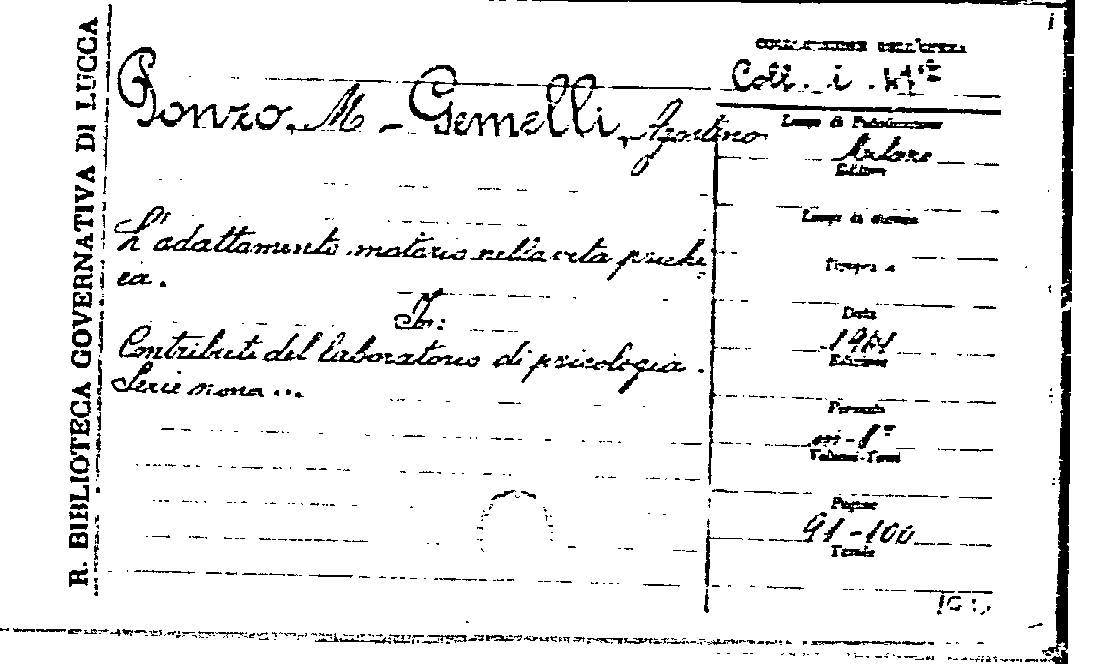 R. BIBLIOTECA GOVERNATIVA DI LUCCA
COLLOCAZIONE DELL'OPERA
Coll. i.
Ponzo, M - Gemelli, Agostino
Luogo di Pubblicazione
Milano
Editore
Luogo di stampa
L'adattamento motorio nella vita psichi
ca.
Tipografia
In:
Data
Contributi del laboratorio di psicologia.
Edizione
Serie nona ...
Formato
in-8°
Volumi-Tomi
Pagine
91-100
Tavole